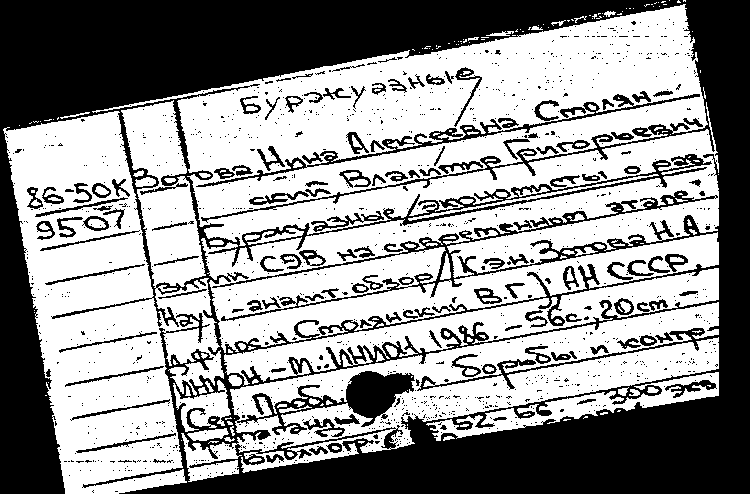 Буржуазные
86-50К
9507
Зотова, Нина Алексеевна, Столян-
ский, Владимир Григорьевич
Буржуазные экономисты о раз-
витии СЭВ на современном этапе:
Науч.-аналит. обзор / [К.э.н. Зотова Н.А.,
д.филос.н Столянский В.Г.); АН СССР,
ИНИОН. - М.: ИНИОН, 1986. - 56с.; 20см. -
(Сер.: Пробл. л. борьбы и контр-
пропаганды
Библиогр.: 52-56. - 300 экз